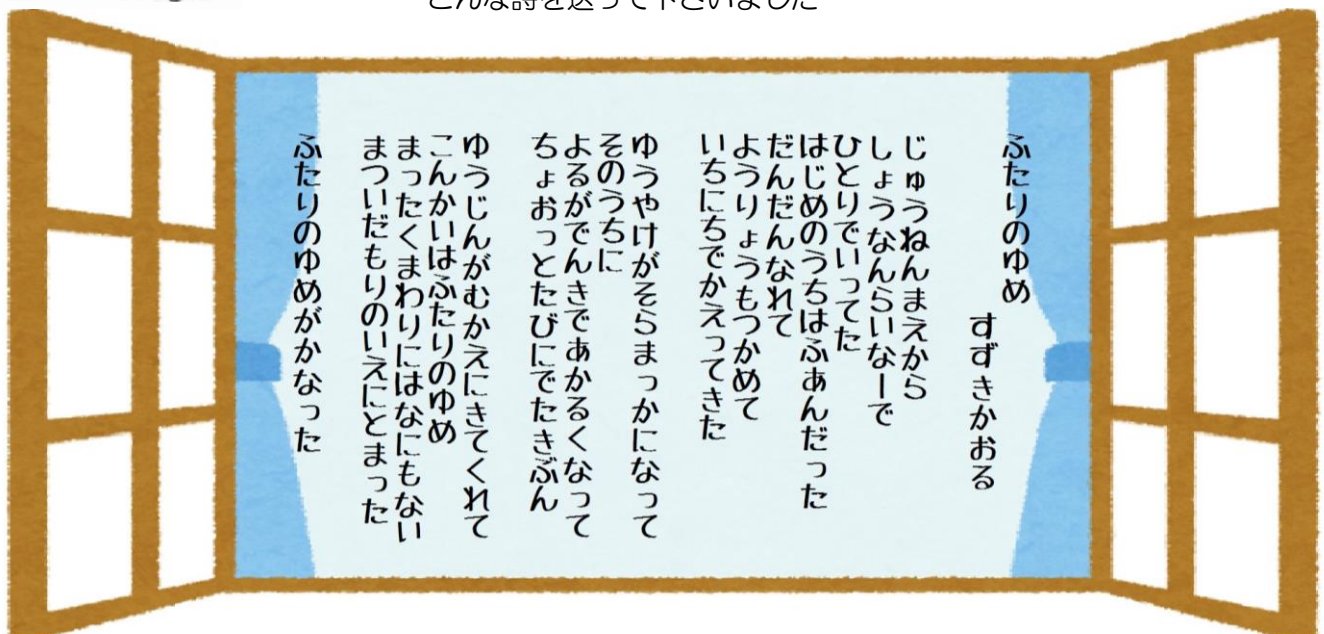 こんな詩を送って下さいました
ふたりのゆめ
すずきかおる
じゅうねんまえから
しょうなんらいなーで
ひとりでいってた
はじめのうちはふあんだった
だんだんなれて
ようりょうもつかめて
いちにちでかえってきた
ゆうやけがそらまっかになって
そのうちに
よるがでんきであかるくなって
ちょおっとたびにでたきぶん
ゆうじんがむかえにきてくれて
こんかいはふたりのゆめ
まったくまわりにはなにもない
まついだもりのいえにとまった
ふたりのゆめがかなった